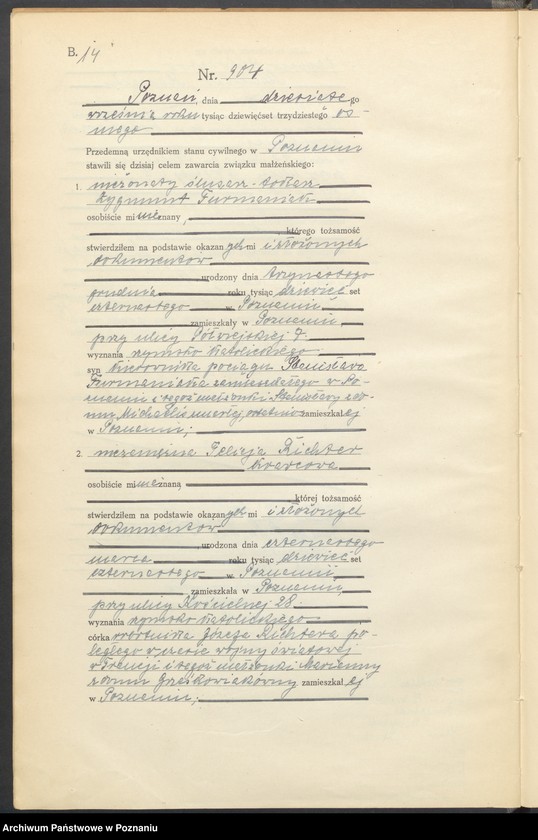 B. 14
Nr. 904
Poznań, dnia dziesiątego
września roku tysiąc dziewięćset trzydziestego ós-
mego
Przedemną urzędnikiem stanu cywilnego w Poznaniu
stawili się dzisiaj celem zawarcia związku małżeńskiego:
1. nieżonaty ślusarz-tokarz
Zygmunt Furmaniak
osobiście mi nieznany,
, którego tożsamość
stwierdziłem na podstawie okazanych mi i złożonych
dokumentów
urodzony dnia trzynastego
grudnia roku tysiąc dziewięćset
czternastego w Poznaniu
zamieszkały w Poznaniu,
przy ulicy Półwiejskiej 7.
wyznania rzymsko katolickiego
syn kierownika pociągu Stanisława
Furmaniaka zamieszkałego w Po-
znaniu i tegoż małżonki Stanisławy zdo-
mu Michalis zmarłej, ostatnio zamieszkałej
w Poznaniu;
2. niezamężna Felicja Richter
krawcowa
osobiście mi nieznaną
, której tożsamość
stwierdziłem na podstawie okazanych mi i złożonych
dokumentów
, urodzona dnia czternastego
marca roku tysiąc dziewięćset
czternastego w Poznaniu,
zamieszkała w Poznaniu,
przy ulicy Kościelnej 28.
wyznania rzymsko katolickiego
córka robotnika Józefa Richtera po-
ległego w czasie wojny światowej
w Francji i tegoż małżonki Marianny
z domu Grześkowiakówny zamieszkałej
w Poznaniu;
Archiwum Państwowe w Poznaniu